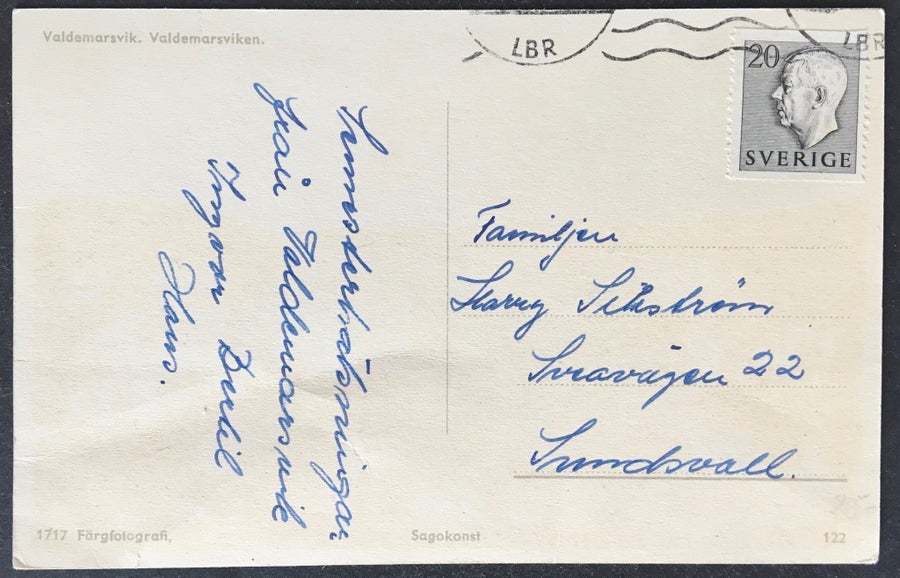 Valdemarsvik. Valdemarsviken.
LBR
LBR
20
SVERIGE
Semesterhälsningar
från Valdemarsvik
Ingvar Bertil
Hans.
Familjen
Harry Sikström
Sveavägen 22
Sundsvall.
1717 Färgfotografi,
Sagokonst
122